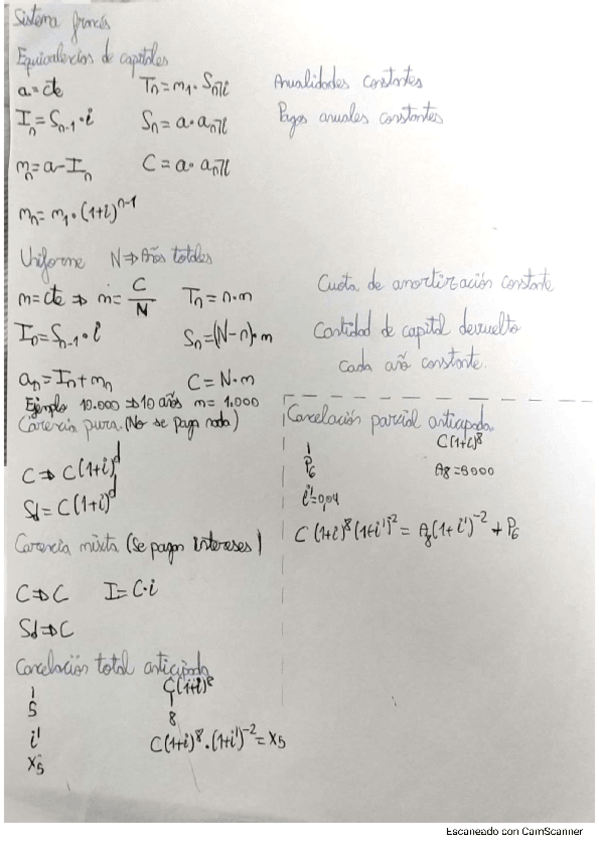 Sistema francés
Equivalencias de capitales
a=cte    Tn=m1·Sn¬i    Anualidades constantes
In=Sn-1·i    Sn=a·an¬i    Pagos anuales constantes
mn=a-In    C=a·an¬i
mn=m1·(1+i)^n-1
Uniforme    N⇒Años totales
m=cte ⇒ m=C/N    Tn=n·m    Cuota de amortización constante
In=Sn-1·i    Sn=(N-n)·m    Cantidad de capital devuelto
cada año constante.
an=In+mn    C=N·m
Ejemplo 10.000 ⇒10 años m=1.000
Carencia pura (No se paga nada)
C⇒C(1+i)^d
Sd=C(1+i)^d
Carencia mixta (se pagan intereses)
C⇒C    I=C·i
Sd⇒C
Cancelación total anticipada
C(1+i)^8
5    8
i'    C(1+i)^8·(1+i')^-2=X5
X5
Cancelación parcial anticipada
C(1+i)^8
P6    A8=8000
i'=0,04
C(1+i)^8(1+i')^-2=A8(1+i')^-2+P6
Escaneado con CamScanner